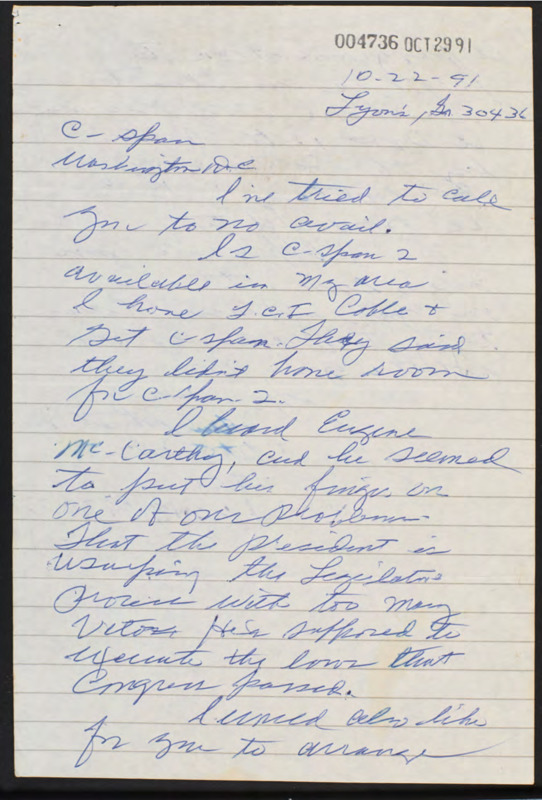 004736 OCT2991
10-22-91
Lyons, Ga 30436
C-Span
Washington D.C
I've tried to call
you to no avail.
Is C-Span 2
available in my area
I have T.C.I Cable &
get C-span. They said
they didn't have room
for C-Span 2.
I heard Eugene
Mc-Carthy, and he seemed
to put his finger on
one of our problems
That the president is
usurping the Legislative
process with too many
Vetos. He is supposed to
execute the laws that
Congress passed.
I would also like
for you to arrange